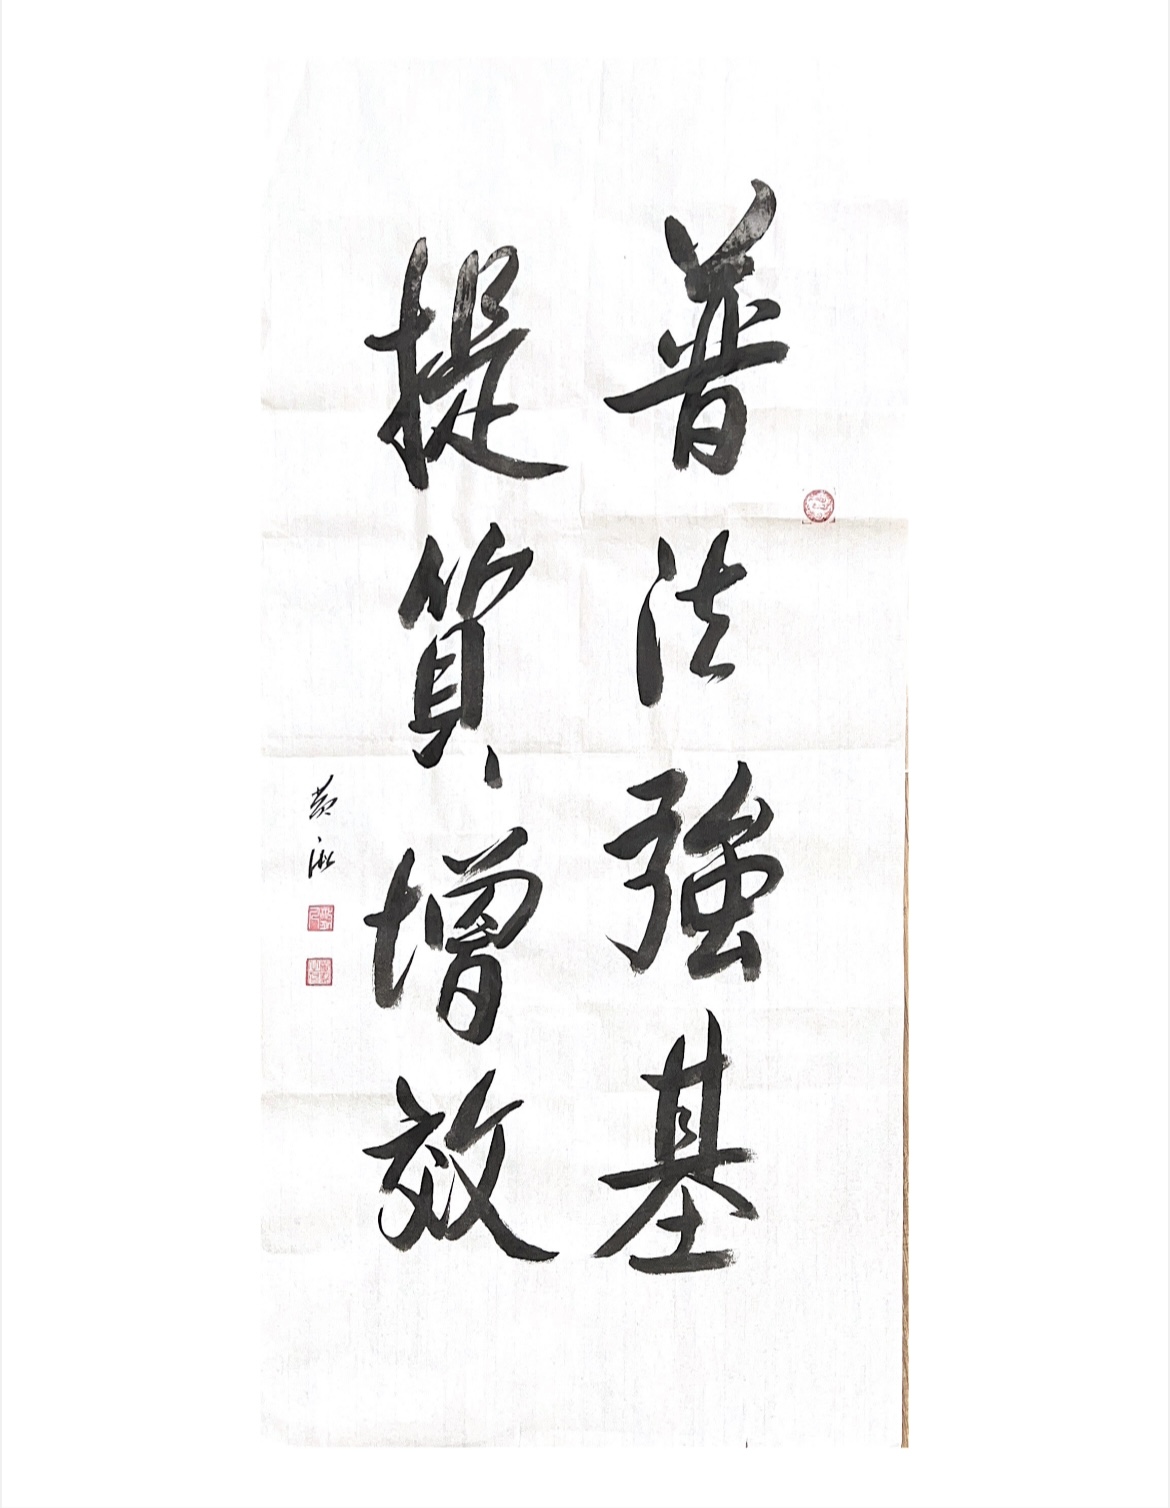 普法強基
提質增效